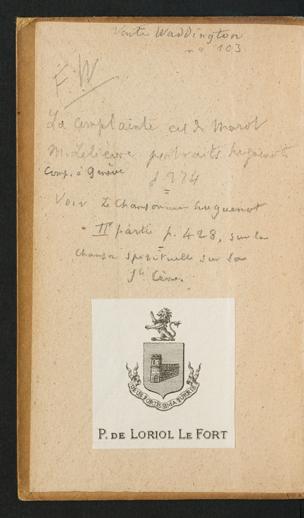 Vente Waddington
nº 103
F. W
La complainte est de Marot
M. Lelièvre portraits huguenots
Comp. à Genève p 274
Voir Le Chansonnier huguenot
IIe partie p. 428, sur la
chanson spirituelle sur la
Ste Cène.
P. DE LORIOL LE FORT